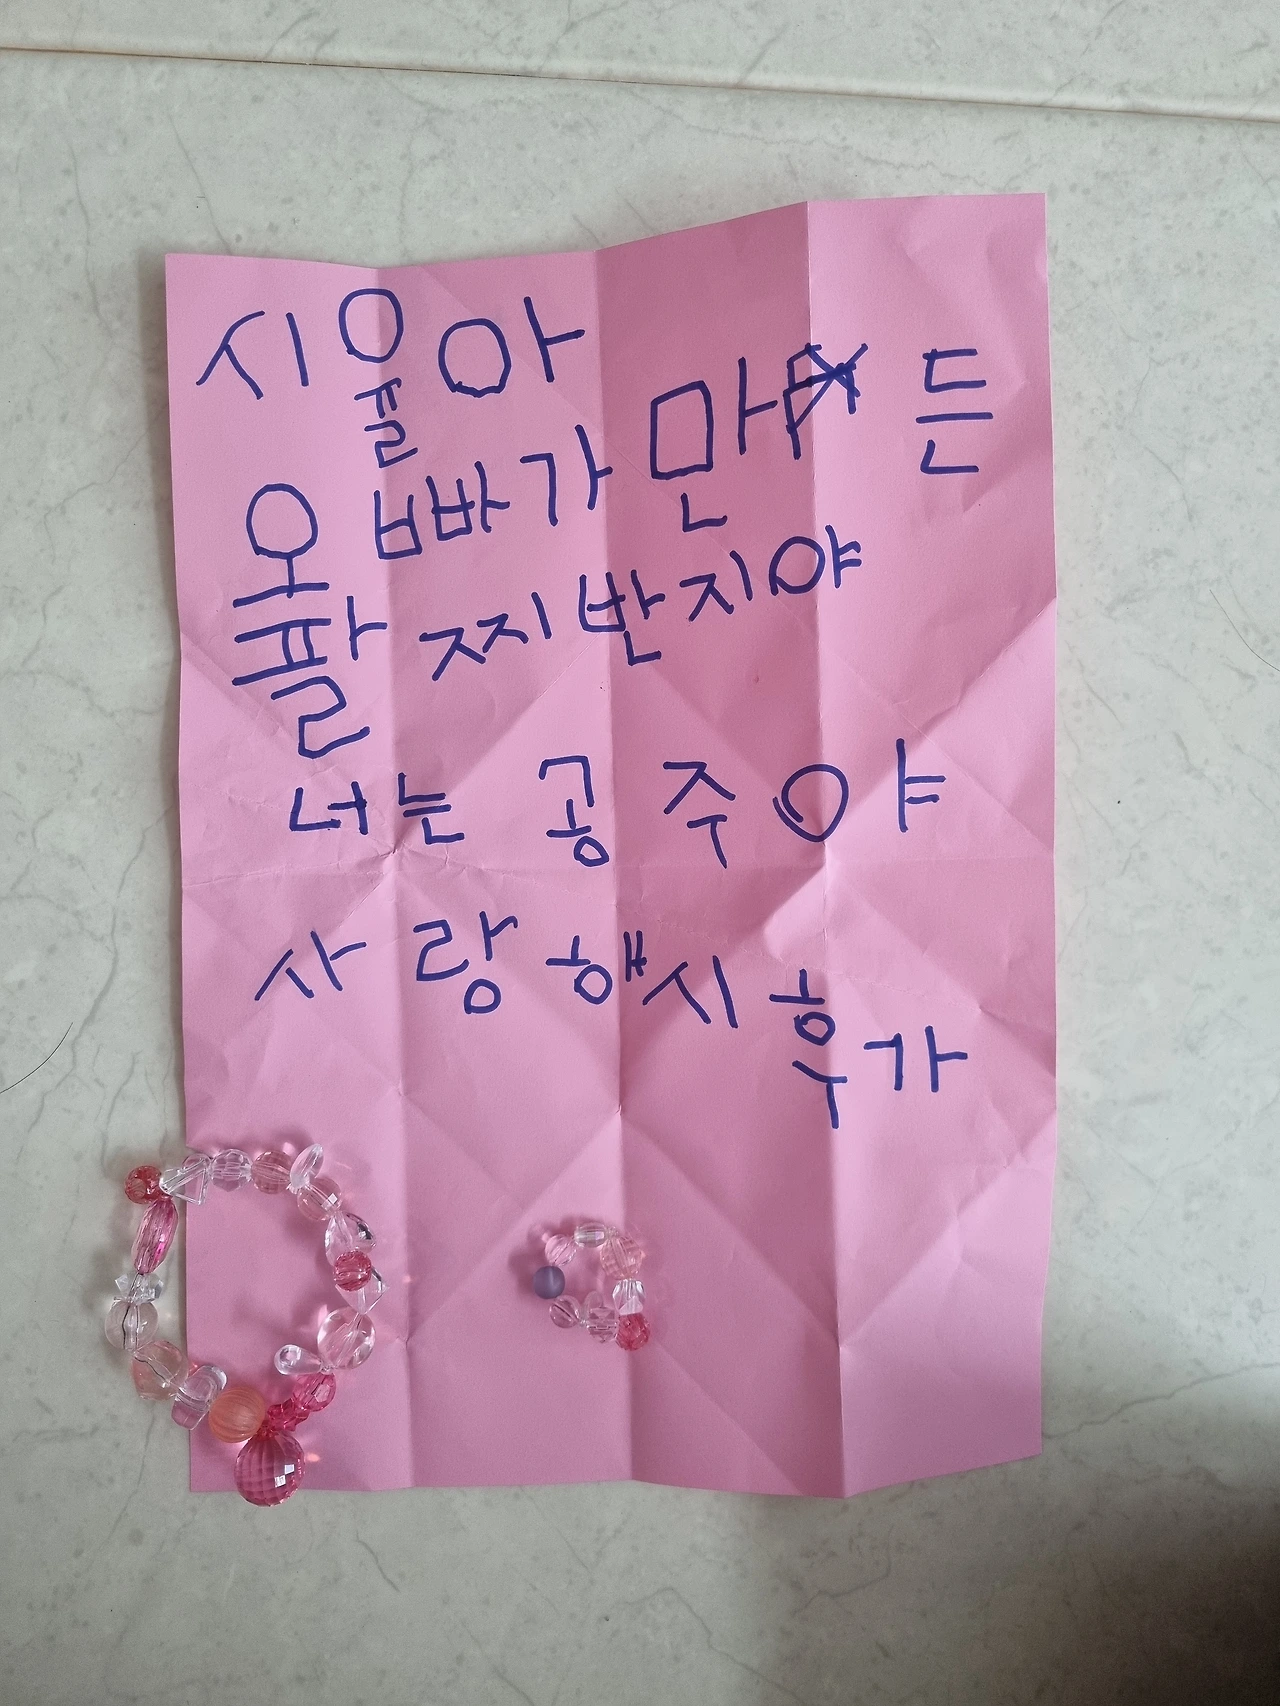 시율아
오빠가 만든
팔찌반지야
너는 공주야
사랑해시후가